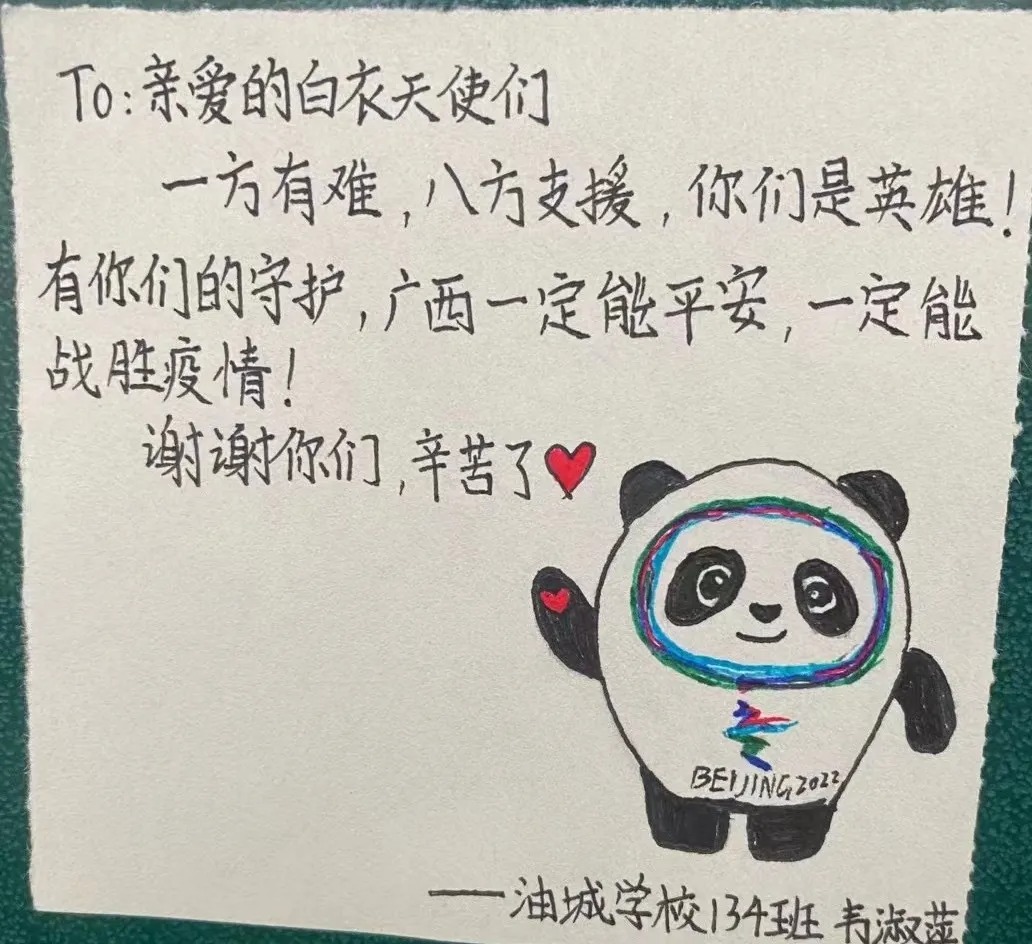 To:亲爱的白衣天使们
一方有难,八方支援,你们是英雄!
有你们的守护,广西一定能平安,一定能
战胜疫情!
谢谢你们,辛苦了
BEIJING2022
——油城学校134班 韦淑萍